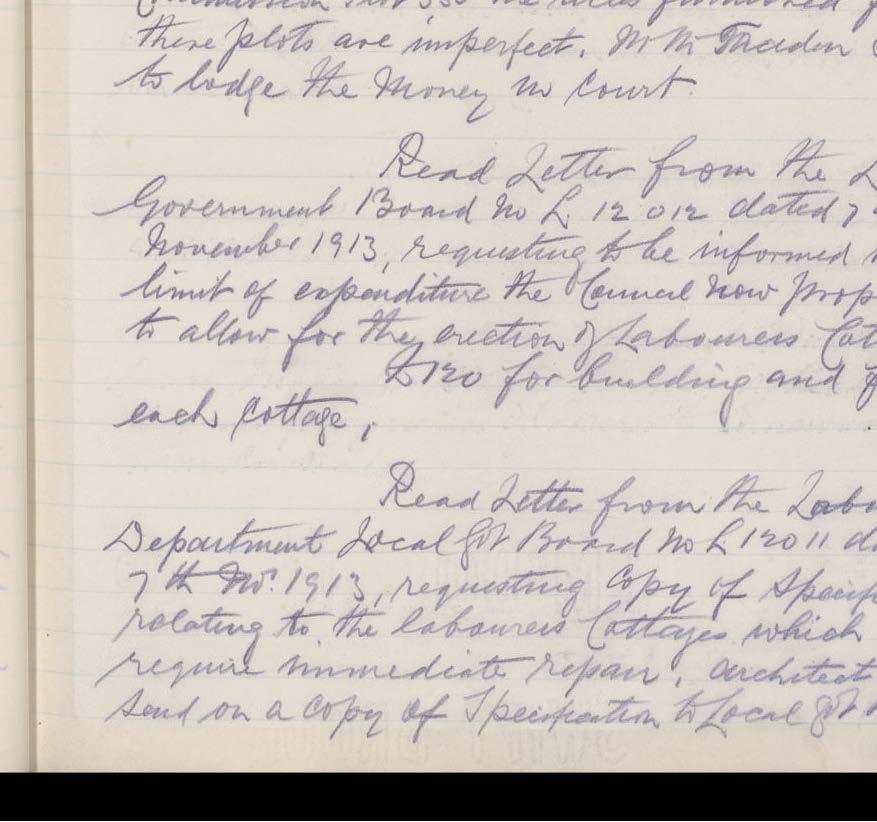 these plots are imperfect. Mr
to lodge the Money in Court.
Read Letter from the L
Government Board No L 12012 dated 7
November 1913, requesting to be informed
limit of expenditure the Council now prop
to allow for the erection of Labourers Cot
£120 for building and f
each cottage,
Read Letter from the Labo
Department Local Govt Board No L 12011 d
7th Nov. 1913, requesting Copy of Specif
relating to the labourers Cottages which
require immediate repair. Architect
send on a copy of Specification to Local Govt